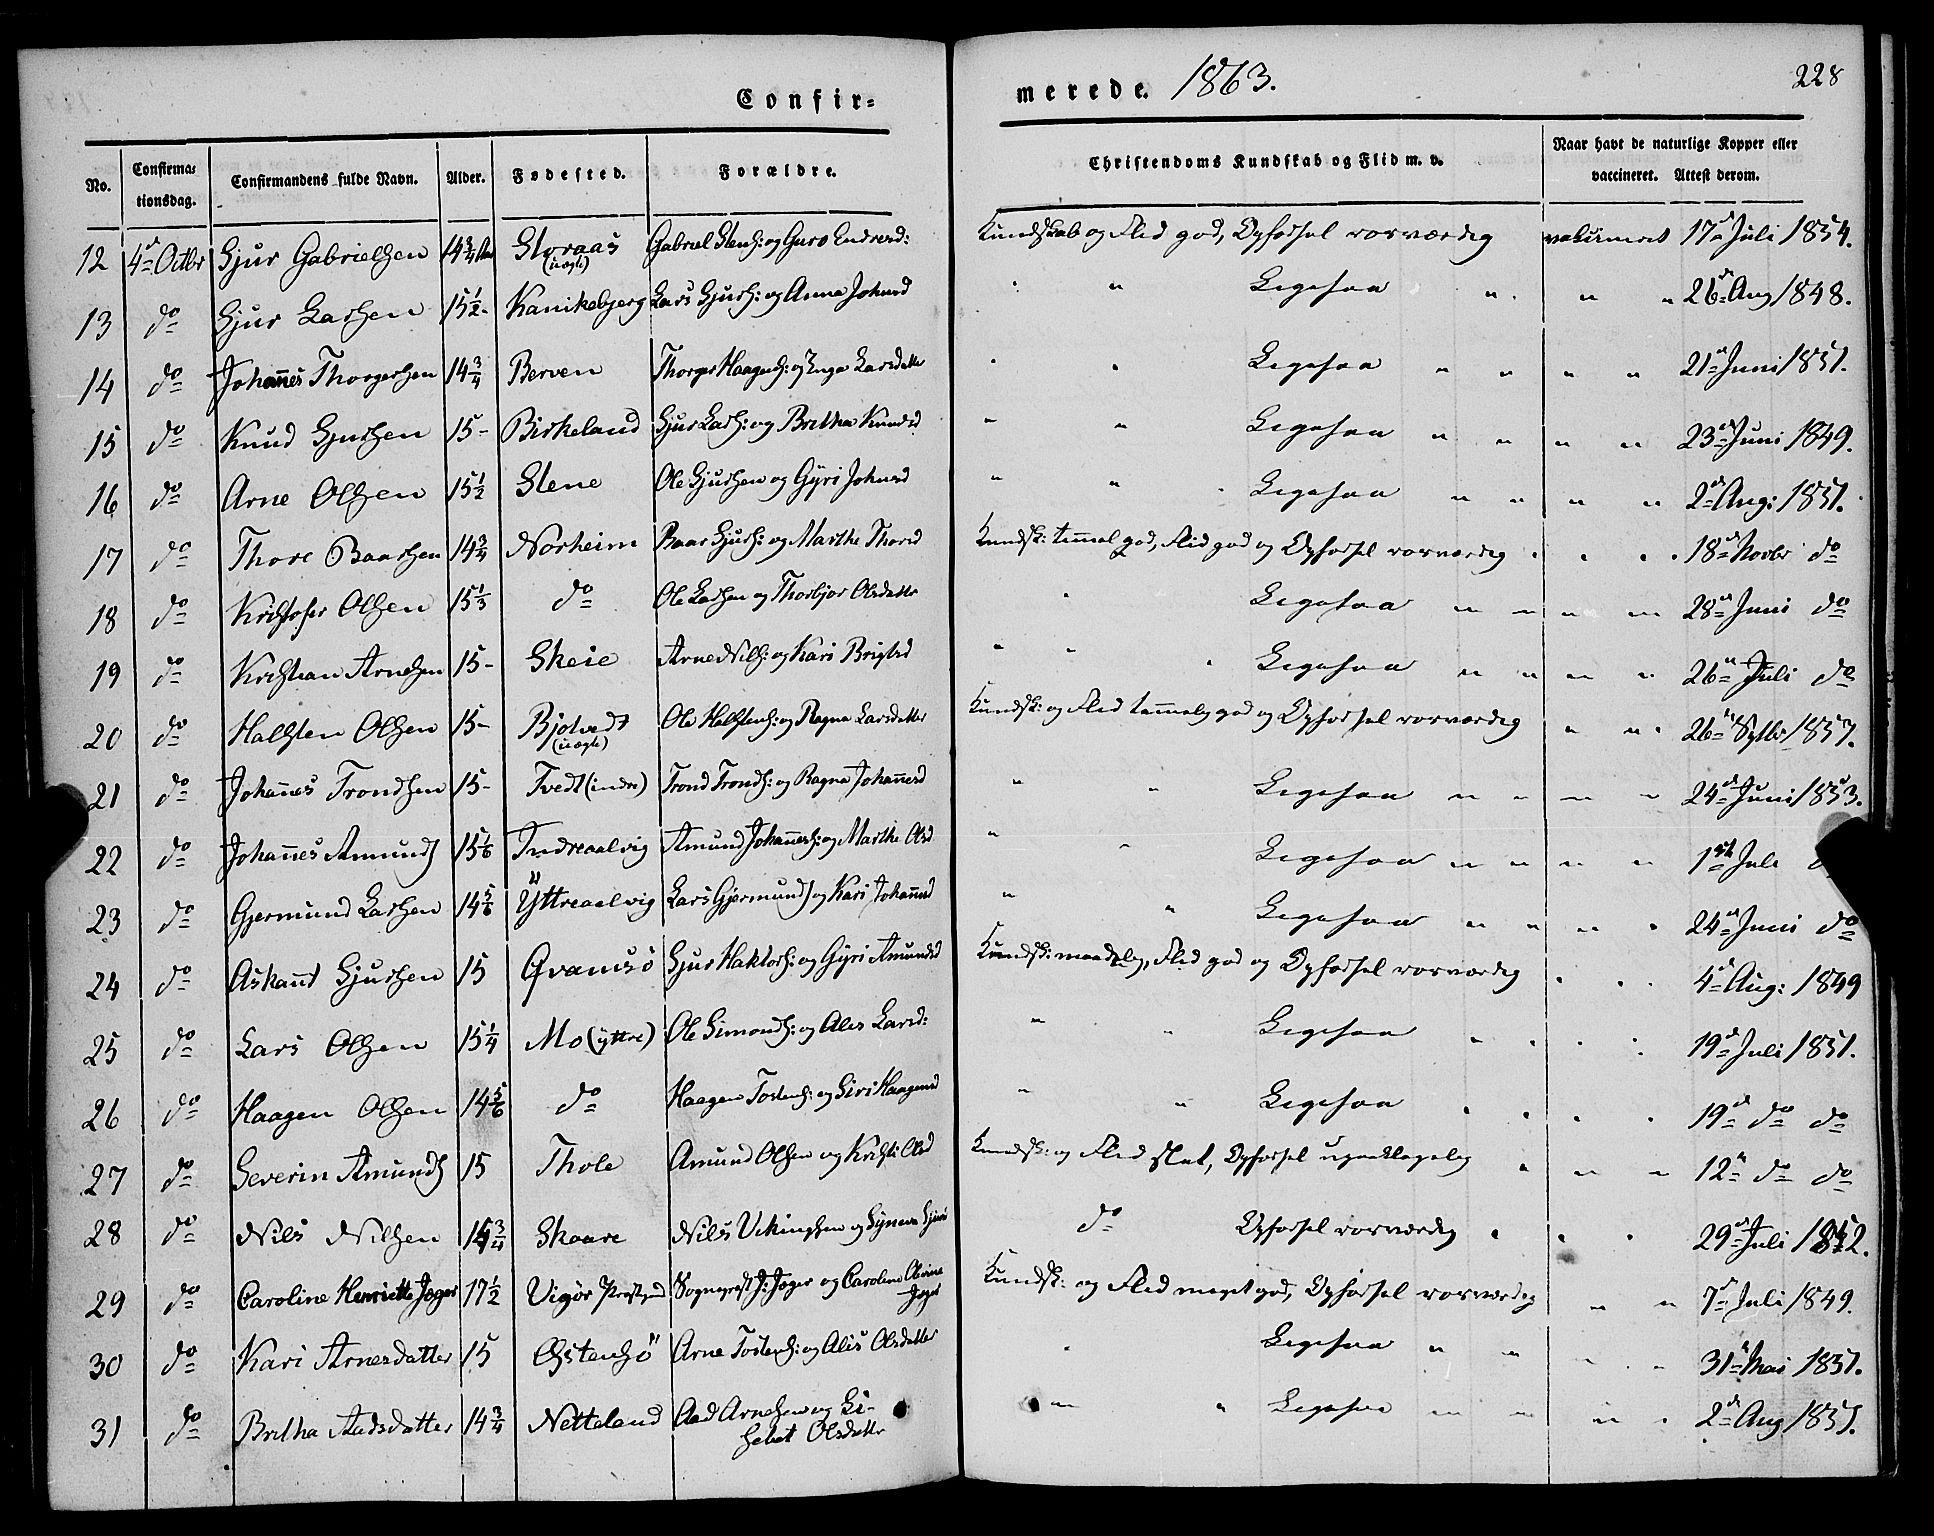 Confir-
merede. 1863.
228
No. Confirma-tionsdag. Confirmandens fulde Navn. Alder. Fødested. Forældre. Christendoms Kundskab og Flid m. v. Naar havt de naturlige Kopper eller vaccineret. Attest derom.
12 4de Octbr Sjur Gabrielsen 14 3/4 Aar Storaas Gabriel Stens: og Guro Endresd: Kundskab og Flid god, Opførsel rosværdig vakcineret 17de Juli 1854.
13 do Sjur Larsen 15 1/2 - Kanikebjerg Lars Sjurs: og Anna Johnsd " Ligesaa " " " 26de Aug 1848.
14 do Johannes Thorgersen 14 3/4 Berven Thorger Haagens: og Inga Larsdatter " " Ligesaa " " " " 21de Juni 1851.
15 do Knud Sjursen 15 - Birkeland Sjur Lars: og Britha Knudsd " " Ligesaa " " " " 23de Juni 1849.
16 do Arne Olsen 15 1/2 Stene Ole Sjursen og Gyri Johnsd " " Ligesaa " " " " 2de Aug: 1851.
17 do Thore Baarsen 14 3/4 Norheim Baar Sjurs: og Marthe Thorsd Kundsk: temmel god, Flid god og Opførsel rosværdig " " " 18de Novbr do
18 do Kristofer Olsen 15 1/3 do Ole Larsen og Thorbjør Olsdatter " Ligesaa " " " " 28de Juni do
19 do Kristian Arnesen 15 - Skeie Arne Nils: og Kari Brigtsd " " Ligesaa " " " " 26de Juli do
20 do Halsten Olsen 15 - Bjotvedt Ole Halstens: og Ragna Larsdatter Kundsk: og Flid temmelig god og Opførsel rosværdig " " " 26de Septbr 1857.
21 do Johannes Trondsen 15 - Tvedt (indre) Trond Tronds: og Ragna Johannesd " " Ligesaa " " " " 24de Juni 1853.
22 do Johannes Amunds 15 1/6 Indreaalvig Amund Johanness: og Marthe Olsd " " Ligesaa " " " " 1ste Juli
23 do Gjermund Larsen 14 5/6 Yttreaalvig Lars Gjermunds og Kari Johannesd " " Ligesaa " " " " 24de Juni do
24 do Askant Sjursen 15 Qvamsø Sjur Haktors: og Gyri Amundsd Kundsk: maadelig, Flid god og Opførsel rosværdig " " " 4de Aug: 1849
25 do Lars Olsen 15 1/4 Mo (yttre) Ole Simonds: og Ales Larsd: " " Ligesaa " " " " 19de Juli 1851.
26 do Haagen Olsen 14 5/6 do Haagen Tostens: og Siri Haagensd " " Ligesaa " " " " 19de do do
27 do Severin Amunds 15 Thole Amund Olsen og Kristi Olsd Kundsk: og Flid slet, Opførsel upaaklagelig " " " 12te do do
28 do Nils Nilsen 14 3/4 Skaare Nils Vikingsen og Synneva Sjursd do Opførsel rosværdig " " " 29de Juli 1852.
29 do Caroline Henriette Jæger 17 1/2 Vigør Præstgrd Sogneprest J: Jæger og Caroline Olivine Jæger Kundsk: og Flid meget god, Opførsel rosværdig " " 7de Juli 1849.
30 do Kari Arnesdatter 15 Øistensø Arne Tostens: og Ales Olsdatter " Ligesaa " " " " 31te Mai 1851.
31 do Britha Aadsdatter 14 3/4 Netteland Aad Arnesen og Li-sebet Olsdatter " " Ligesaa " " " " 2de Aug 1851.